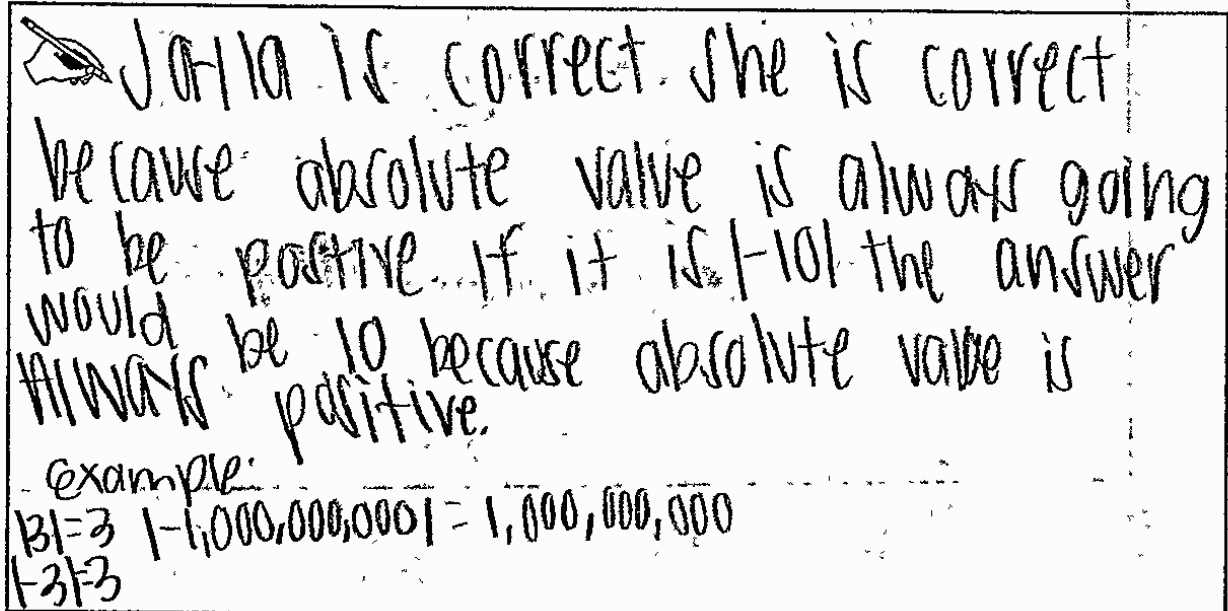 Jayla is correct. She is correct
because absolute value is always going
to be postive. If it is |-10| the answer
would be 10 because absolute value is
always positive.
example:
|3|=3 |-1,000,000,000| = 1,000,000,000
|-3|=3